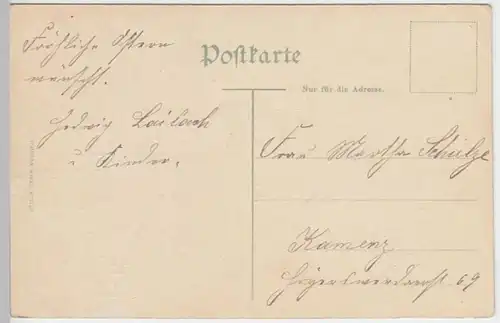 Postkarte
Nur für die Adresse.
Fröhliche Ostern
wünscht.
Hedwig Laibach
u Kinder.
Frau Martha Schulze
Kamenz
Hoyerswerdaerst 69